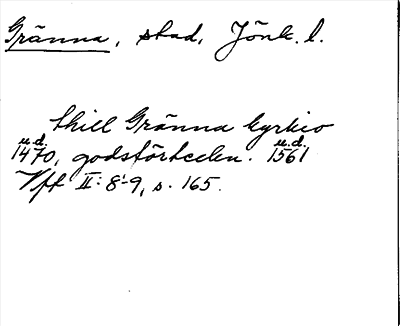 Gränna, stad, Jönk. l.
thill Gränna kyrkio
u.d. u.d.
1470, godsförteckn. 1561
Vft II: 8-9, s. 165.